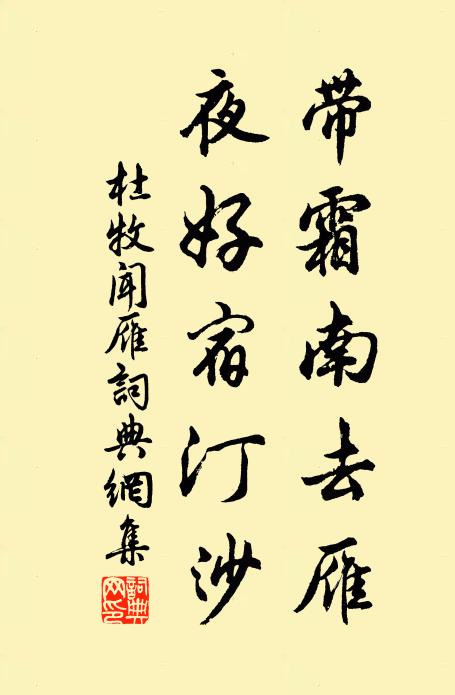 带霜南去雁
夜好宿汀沙
杜牧闻雁詞典網集
詞典
网印